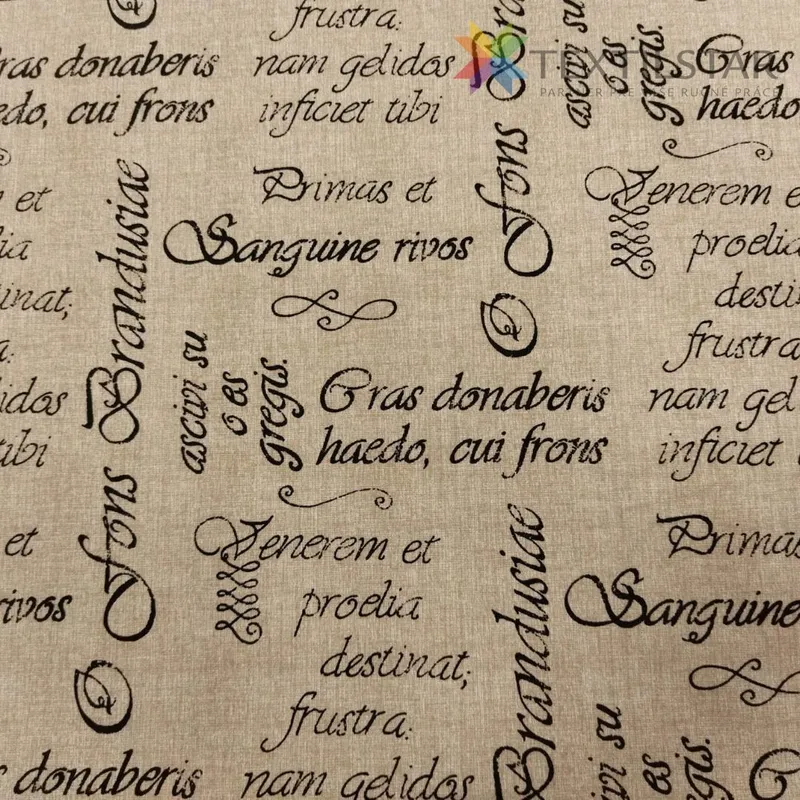 frustra:
nam gelidos
inficiet tibi
ras donaberis
edo, cui frons
TEXTILSTAR
PARTNER PRE VAŠE RUČNÉ PRÁCE
ascivi su
o es
gregis.
Gras
haedo
O Fons Brandusiae
Primas et
Sanguine rivos
et
lia
inat;
a:
idos
tibi
O Fons Bra
Venerem e
proelia
desti
frustra
nam gel
inficiet
ascivi su
o es
gregis.
Gras donaberis
haedo, cui frons
et
rivos
Venerem et
proelia
destinat;
frustra:
nam gelidos
donaberis
Brandusiae
Primas
Sanguine
ivi su
es
gis.
G